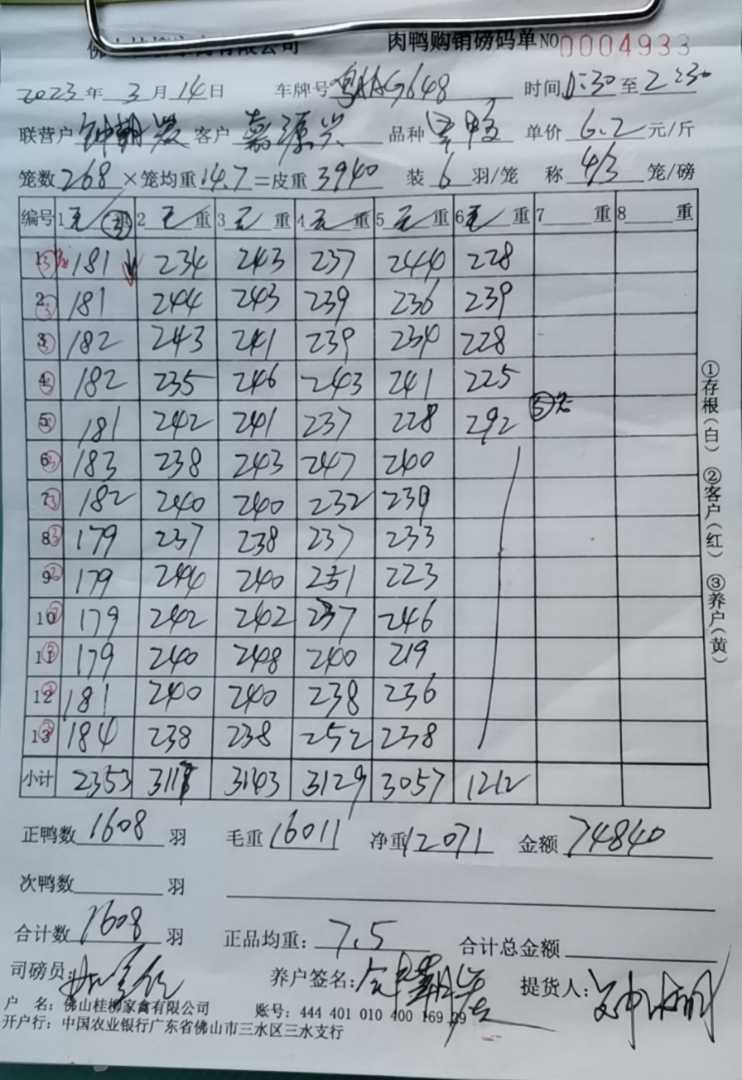 有限公司 肉鸭购销磅码单 NO 0004933
2023年3月14日 车牌号 粤 G648 时间 1:30至2:30
联营户 钟朝 客户 嘉源兴 品种 单价 6.2 元/斤
笼数268×笼均重14.7=皮重3940 装6羽/笼 称4/3笼/磅
编号 1 重 2 毛重 3 毛重 4 毛重 5 毛重 6 毛重 7 重 8 重
1 ③ 181 234 243 237 244 228
2 ③ 181 244 243 239 236 239
3 ③ 182 243 241 239 234 228
4 ③ 182 235 246 243 241 225
5 ③ 181 242 241 237 228 292 ⑤
6 ③ 183 238 243 247 240
7 ③ 182 240 240 232 239
8 ③ 179 237 238 237 233
9 179 244 240 251 223
10 179 242 242 237 246
11 179 240 248 240 219
12 181 240 240 238 236
13 184 238 238 252 238
小计 2353 3117 3143 3129 3057 1212
①存根(白) ②客户(红) ③养户(黄)
正鸭数 1608 羽 毛重 16011 净重 12071 金额 74840
次鸭数 羽
合计数 1608 羽 正品均重: 7.5 合计总金额
司磅员: 养户签名: 钟朝 提货人:
户 名: 佛山桂柳家禽有限公司 账号: 444 401 010 400 169 29
开户行: 中国农业银行广东省佛山市三水区三水支行